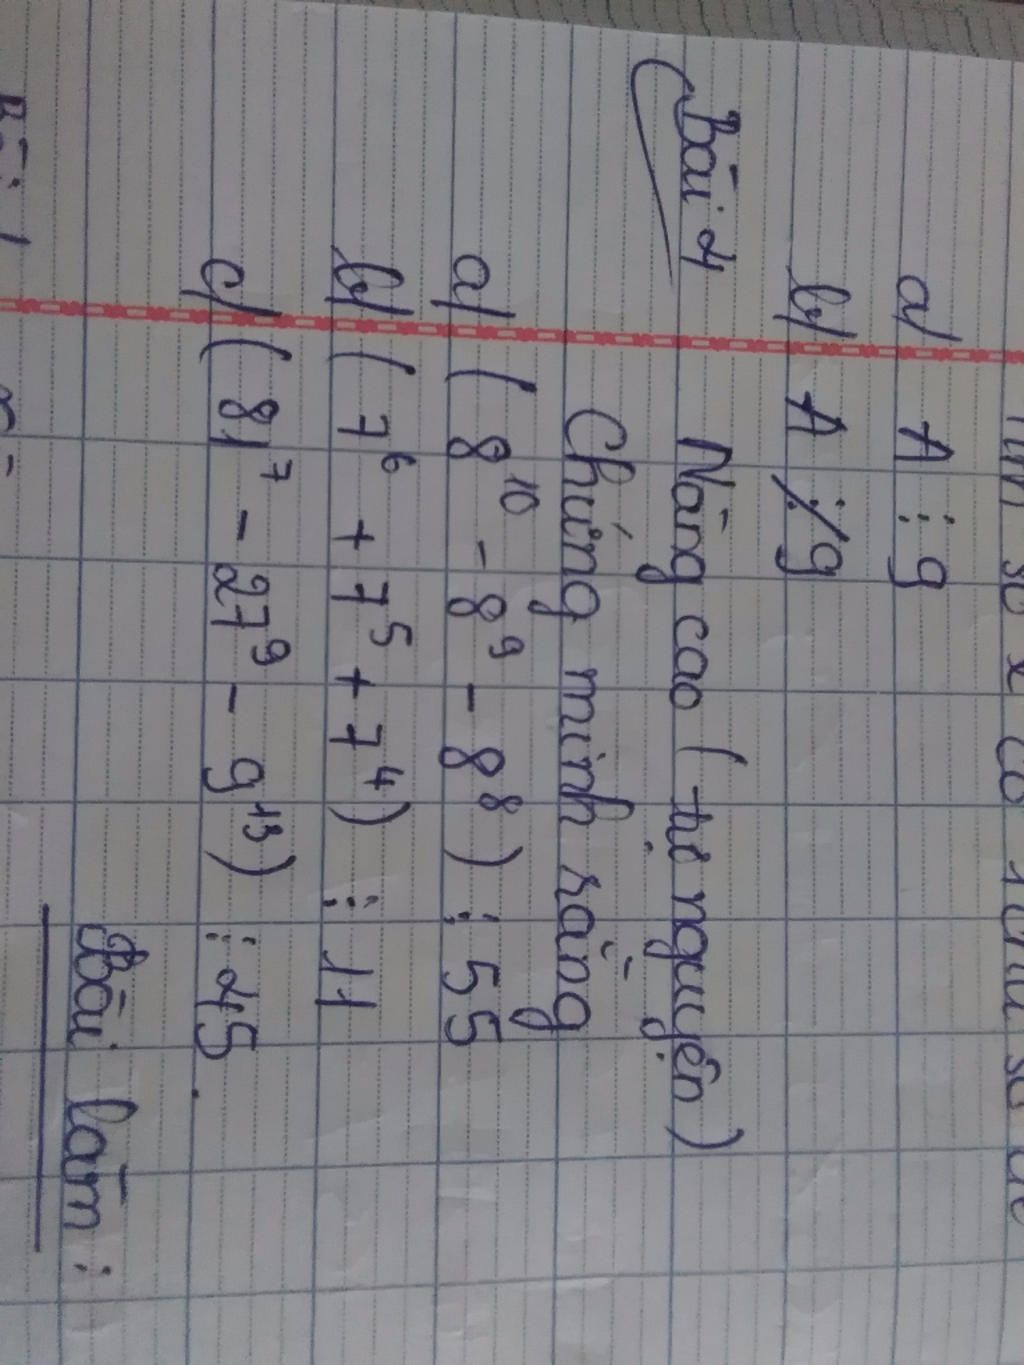 số x có
a/ A ⋮ 9
b/ A ⋮̸ 9
Bài 4 Nâng cao ( tự nguyện )
Chứng minh rằng
a/ ( 8¹⁰ - 8⁹ - 8⁸ ) ⋮ 55
b/ ( 7⁶ + 7⁵ + 7⁴ ) ⋮ 11
c/ ( 81⁷ - 27⁹ - 9¹³ ) ⋮ 45.
Bài làm :